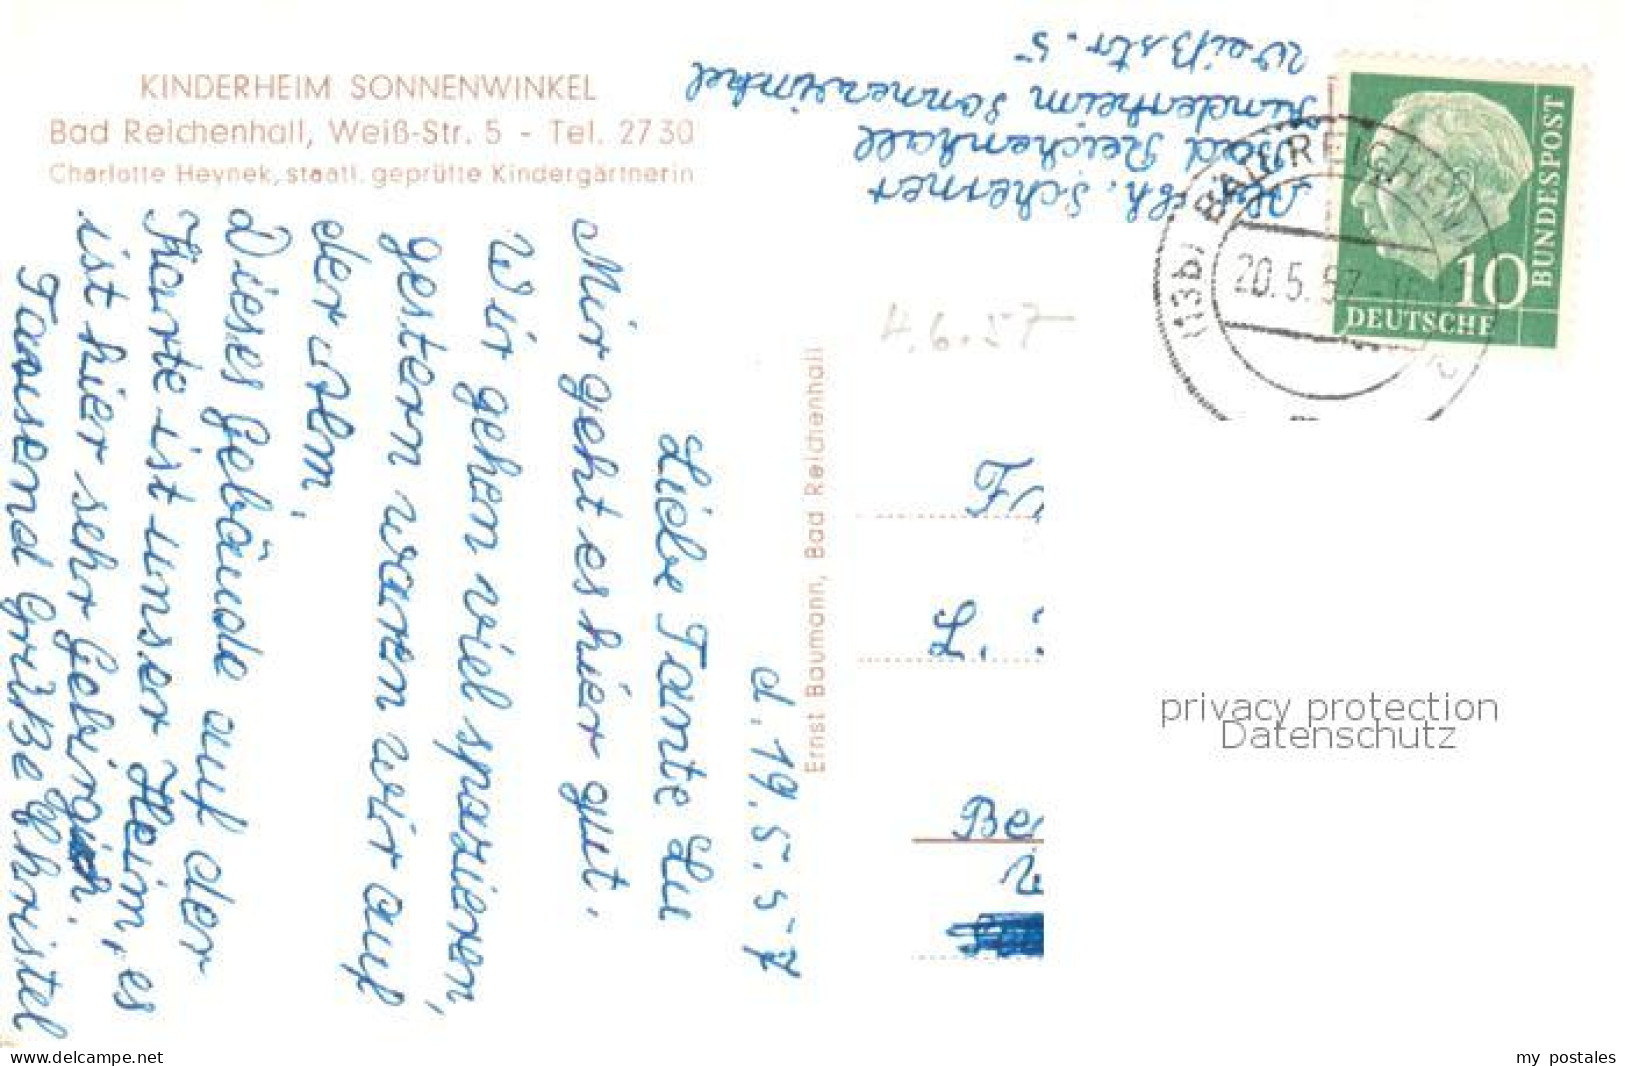 KINDERHEIM SONNENWINKEL
Bad Reichenhall, Weiß-Str. 5 - Tel. 2730
Charlotte Heynek, staatl. geprüfte Kindergärtnerin
d. 19.5.57
Liebe Tante Lu
Mir geht es hier gut.
Wir gehen viel spazieren,
gestern waren wir auf
der Alm.
Dieses Gebäude auf der
Karte ist unser Heim, es
ist hier sehr gebirgich.
Tausend Grüße Christel
Ernst Baumann, Bad Reichenhall
Scherner
Bad Reichenhall
Kinderheim Sonnenwinkel
Weißstr. 5
(13b) BAD REICHEN
20.5.57
10
DEUTSCHE
BUNDESPOST
4.6.57
F
L.
Be
privacy protection
Datenschutz
www.delcampe.net
my postales